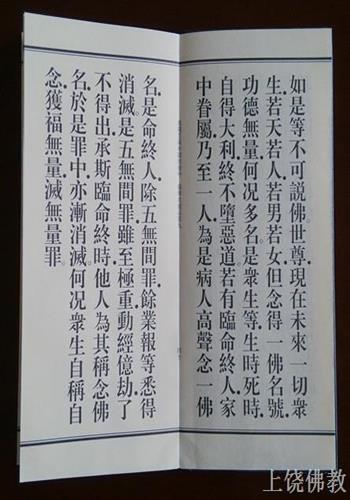 如是等不可說佛世尊。現在未來一切衆
生。若天若人。若男若女。但念得一佛名號。
功德無量。何况多名。是衆生等。生時死時。
自得大利。終不墮惡道。若有臨命終人。家
中眷屬。乃至一人。為是病人。高聲念一佛
名。是命終人。除五無間罪。餘業報等。悉得
消滅。是五無間罪。雖至極重。動經億劫。了
不得出。承斯臨命終時。他人為其稱念佛
名。於是罪中。亦漸消滅。何况衆生自稱自
念。獲福無量。滅無量罪。
上饶佛教